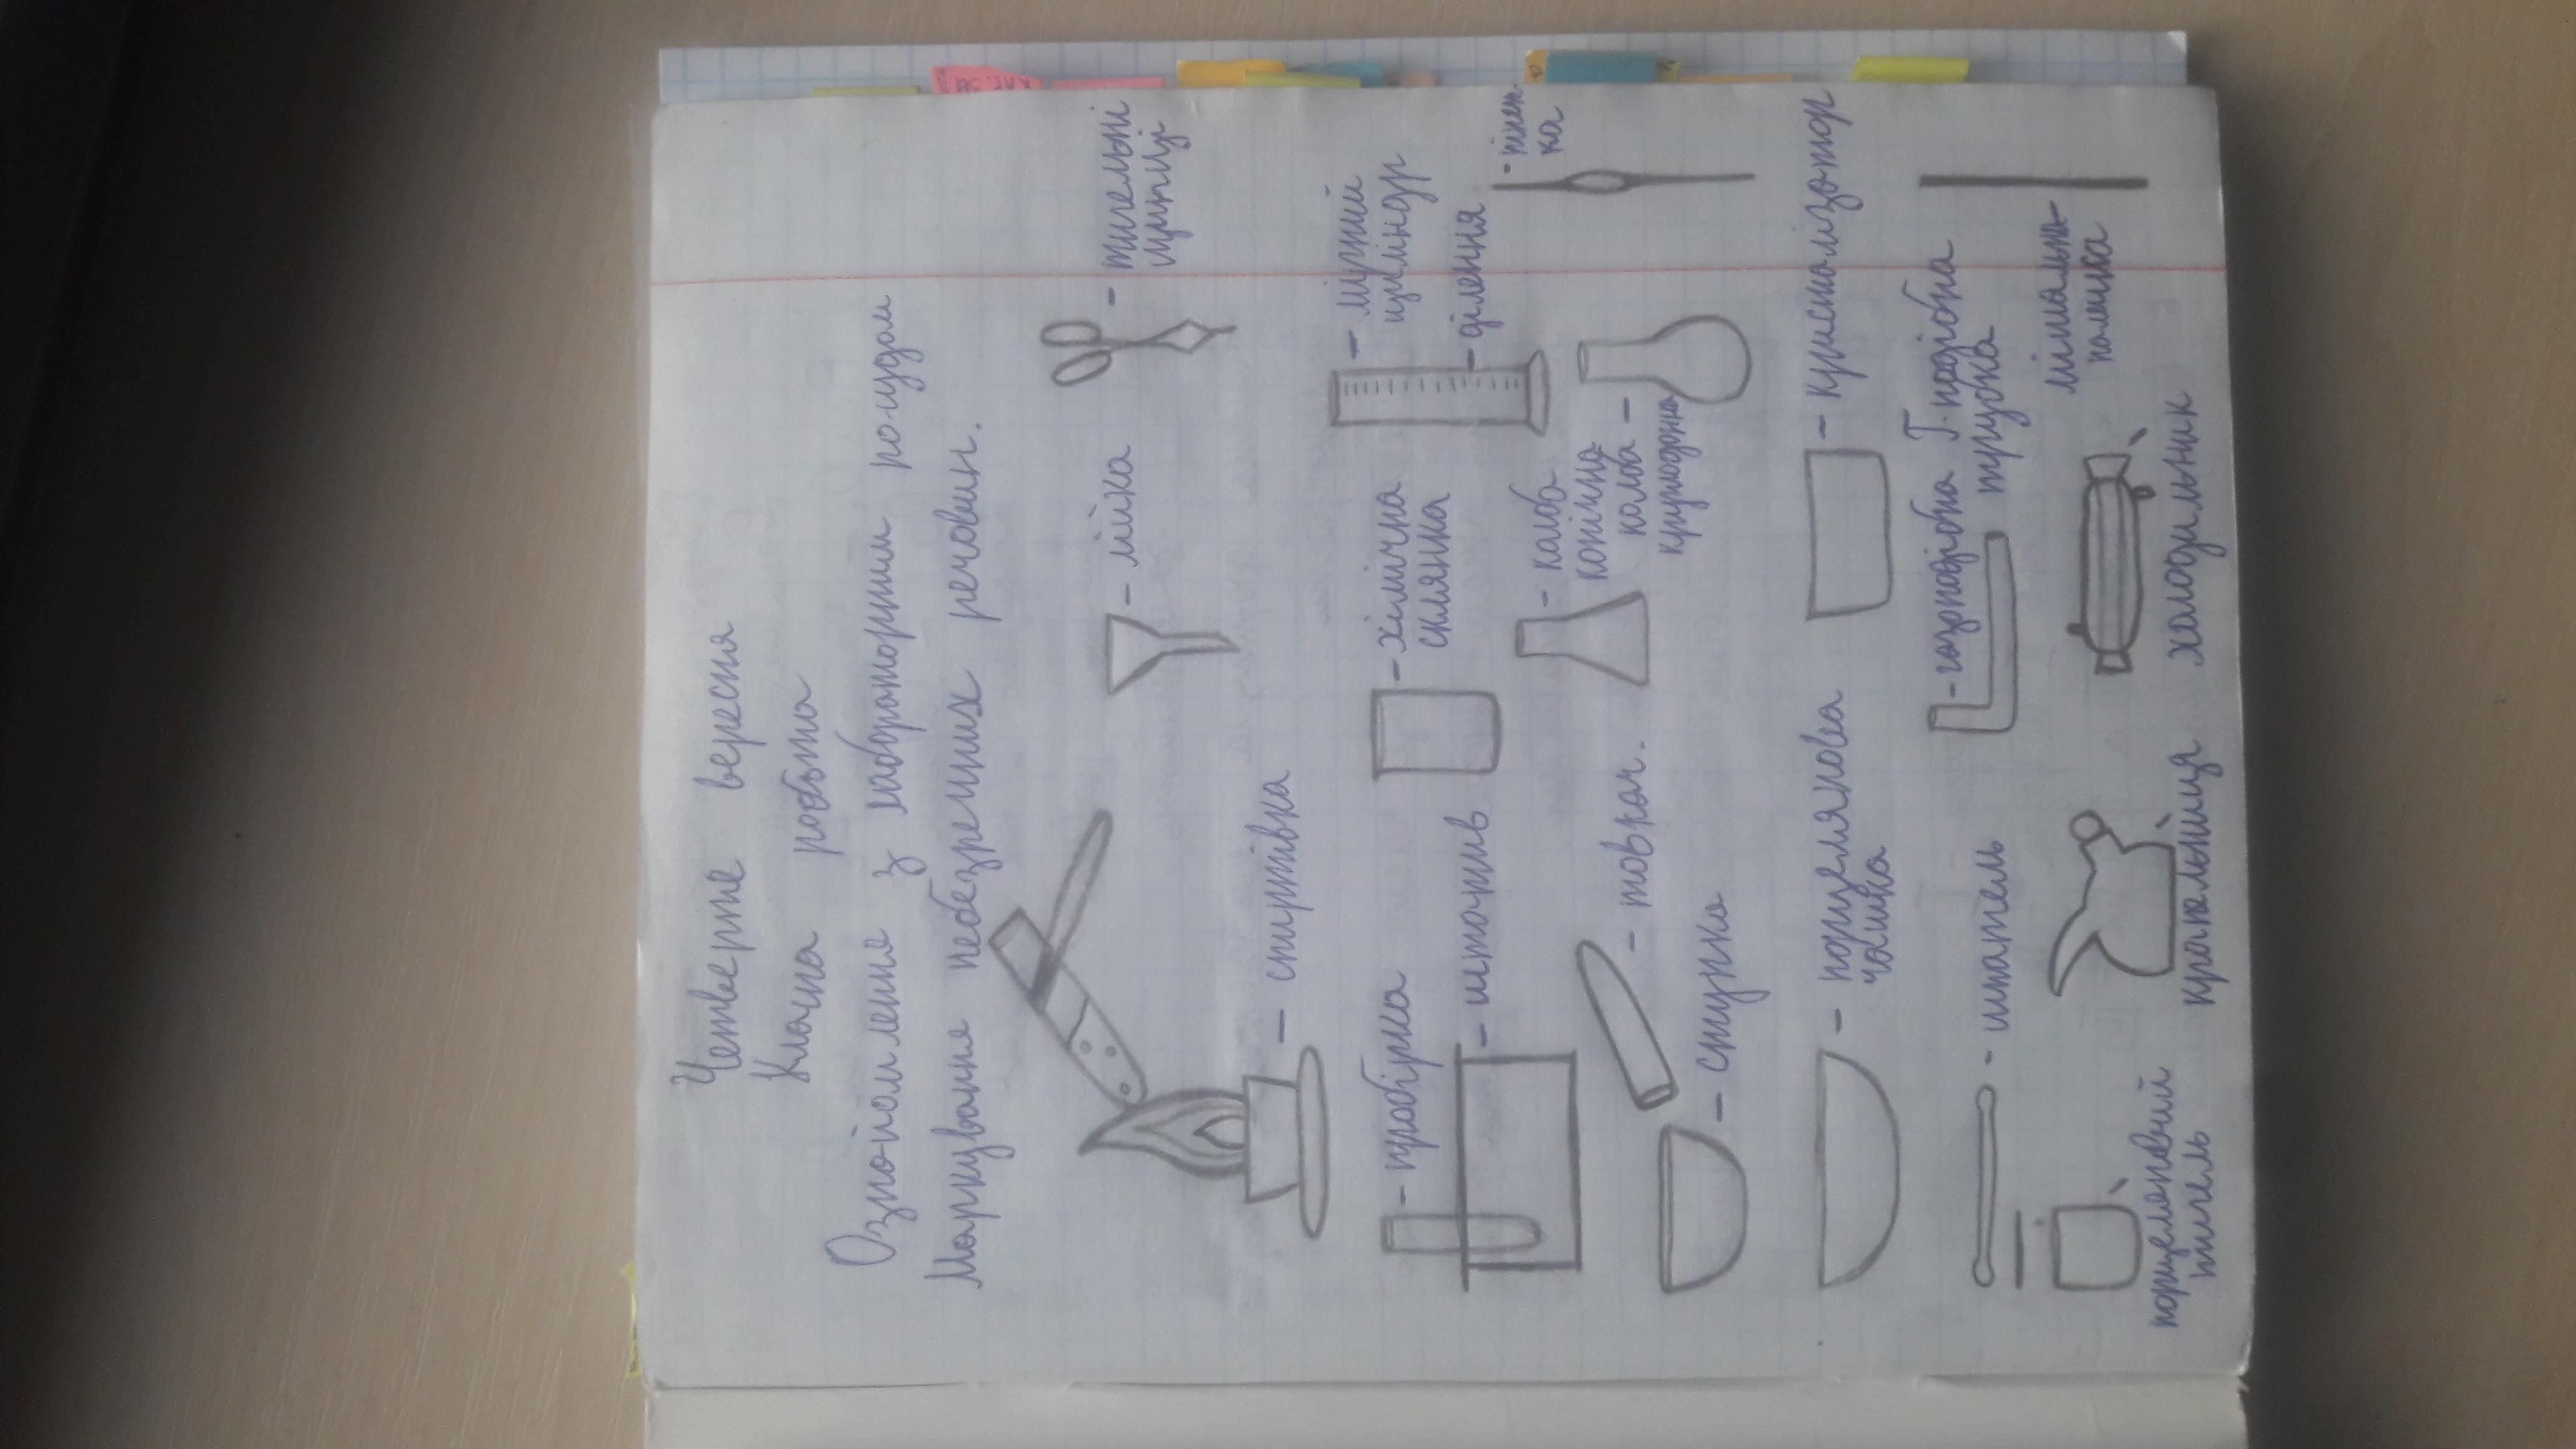 Четверте вересня
Класна робота
Ознойомлення з лабораторним посудом
Маркування небезпечних речовин.
- лійка
- тигельні
щипці
- спиртівка
- пробірка
- штатив
- хімічна
склянка
- мірний
циліндр
- ділення
- піпет-
ка
- товкач.
- ступка
- колба
конічна
колба -
круглодонна
- порцелянова
чашка
- кристалізатор
- шпатель
- газовідвідна Г-подібна
трубка
мішальна
паличка
порцеляновий
тигель
крапельниця
холодильник